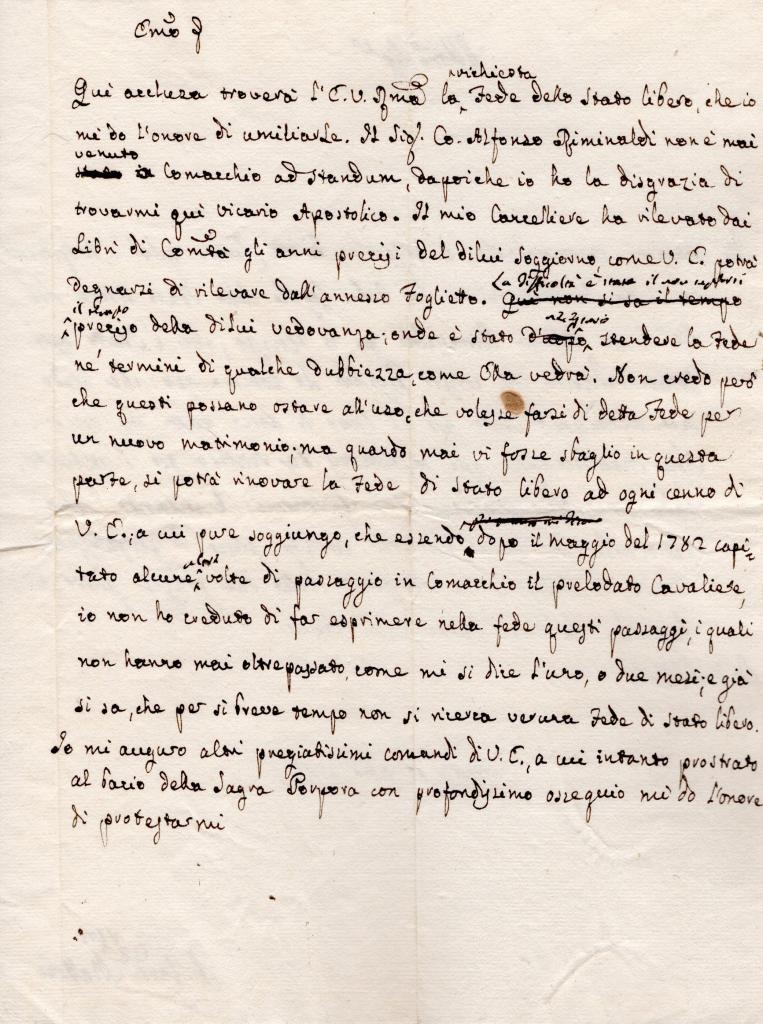 Emo
richiesta
Quì acclusa troverà l'E. V. Rma la Fede dello stato libero, che io
mi do l'onore di umiliarle. Il Sigr. Co. Alfonso Riminaldi non è mai
venuto
stato in Comacchio ad standum, dapoiche io ho la disgrazia di
trovarmi quì Vicario Apostolico. Il mio Cancelliere ha rilevato dai
Libri di Comtà gli anni precisi del dilui soggiorno, come V. E. potrà
degnarsi di rilevare dall'annesso Foglietto. Qui non si sa il tempo
La difficoltà è stata il non sapersi
il tempo
preciso della dilui vedovanza; onde è stato d'uopo stendere la Fede
ne' termini di qualche dubbiezza, come Ella vedrà. Non credo però
che questi possano ostare all'uso, che volesse farsi di detta Fede per
un nuovo matrimonio; ma quando mai vi fosse sbaglio in questa
parte, si potrà rinovare la Fede di stato libero ad ogni cenno di
V. E., a cui pure soggiungo, che essendo dopo il maggio del 1782 capi=
tato alcune volte di passaggio in Comacchio il prelodato Cavaliere,
io non ho creduto di far esprimere nella fede questi passaggi, i quali
non hanno mai oltrepassato, come mi si dice l'uno, o due mesi; e già
si sa, che per si breve tempo non si ricerca veruna Fede di stato libero.
Io mi auguro altri pregiatissimi comandi di V. E., a cui intanto prostrato
al bacio della Sagra Porpora con profondissimo ossequio mi do l'onore
di protestarmi